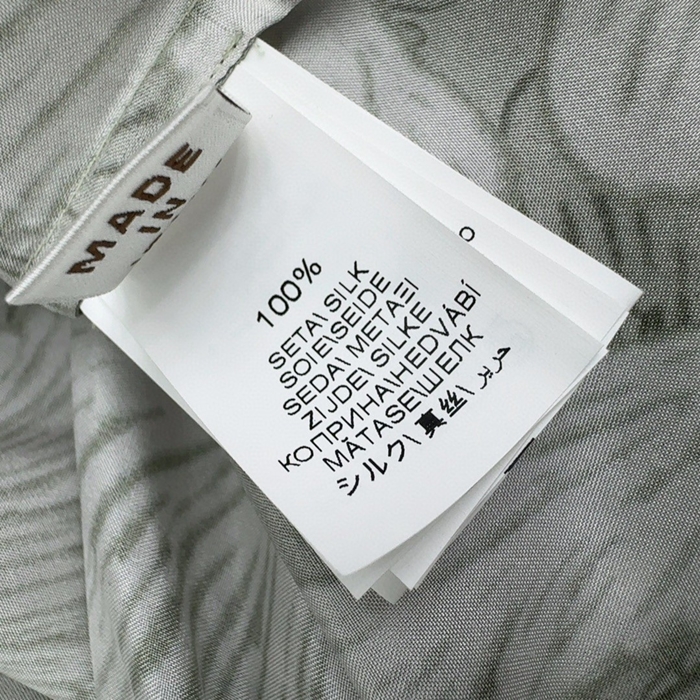 MADE
IN
100%
SETA\ SILK
SOIE\SEIDE
SEDA\ ΜΕΤΑΞΙ
ZIJDE\ SILKE
КОПРИНА\HEDVÁBÍ
MĂTASE\ШЕЛК
シルク\ 真丝\ حرير